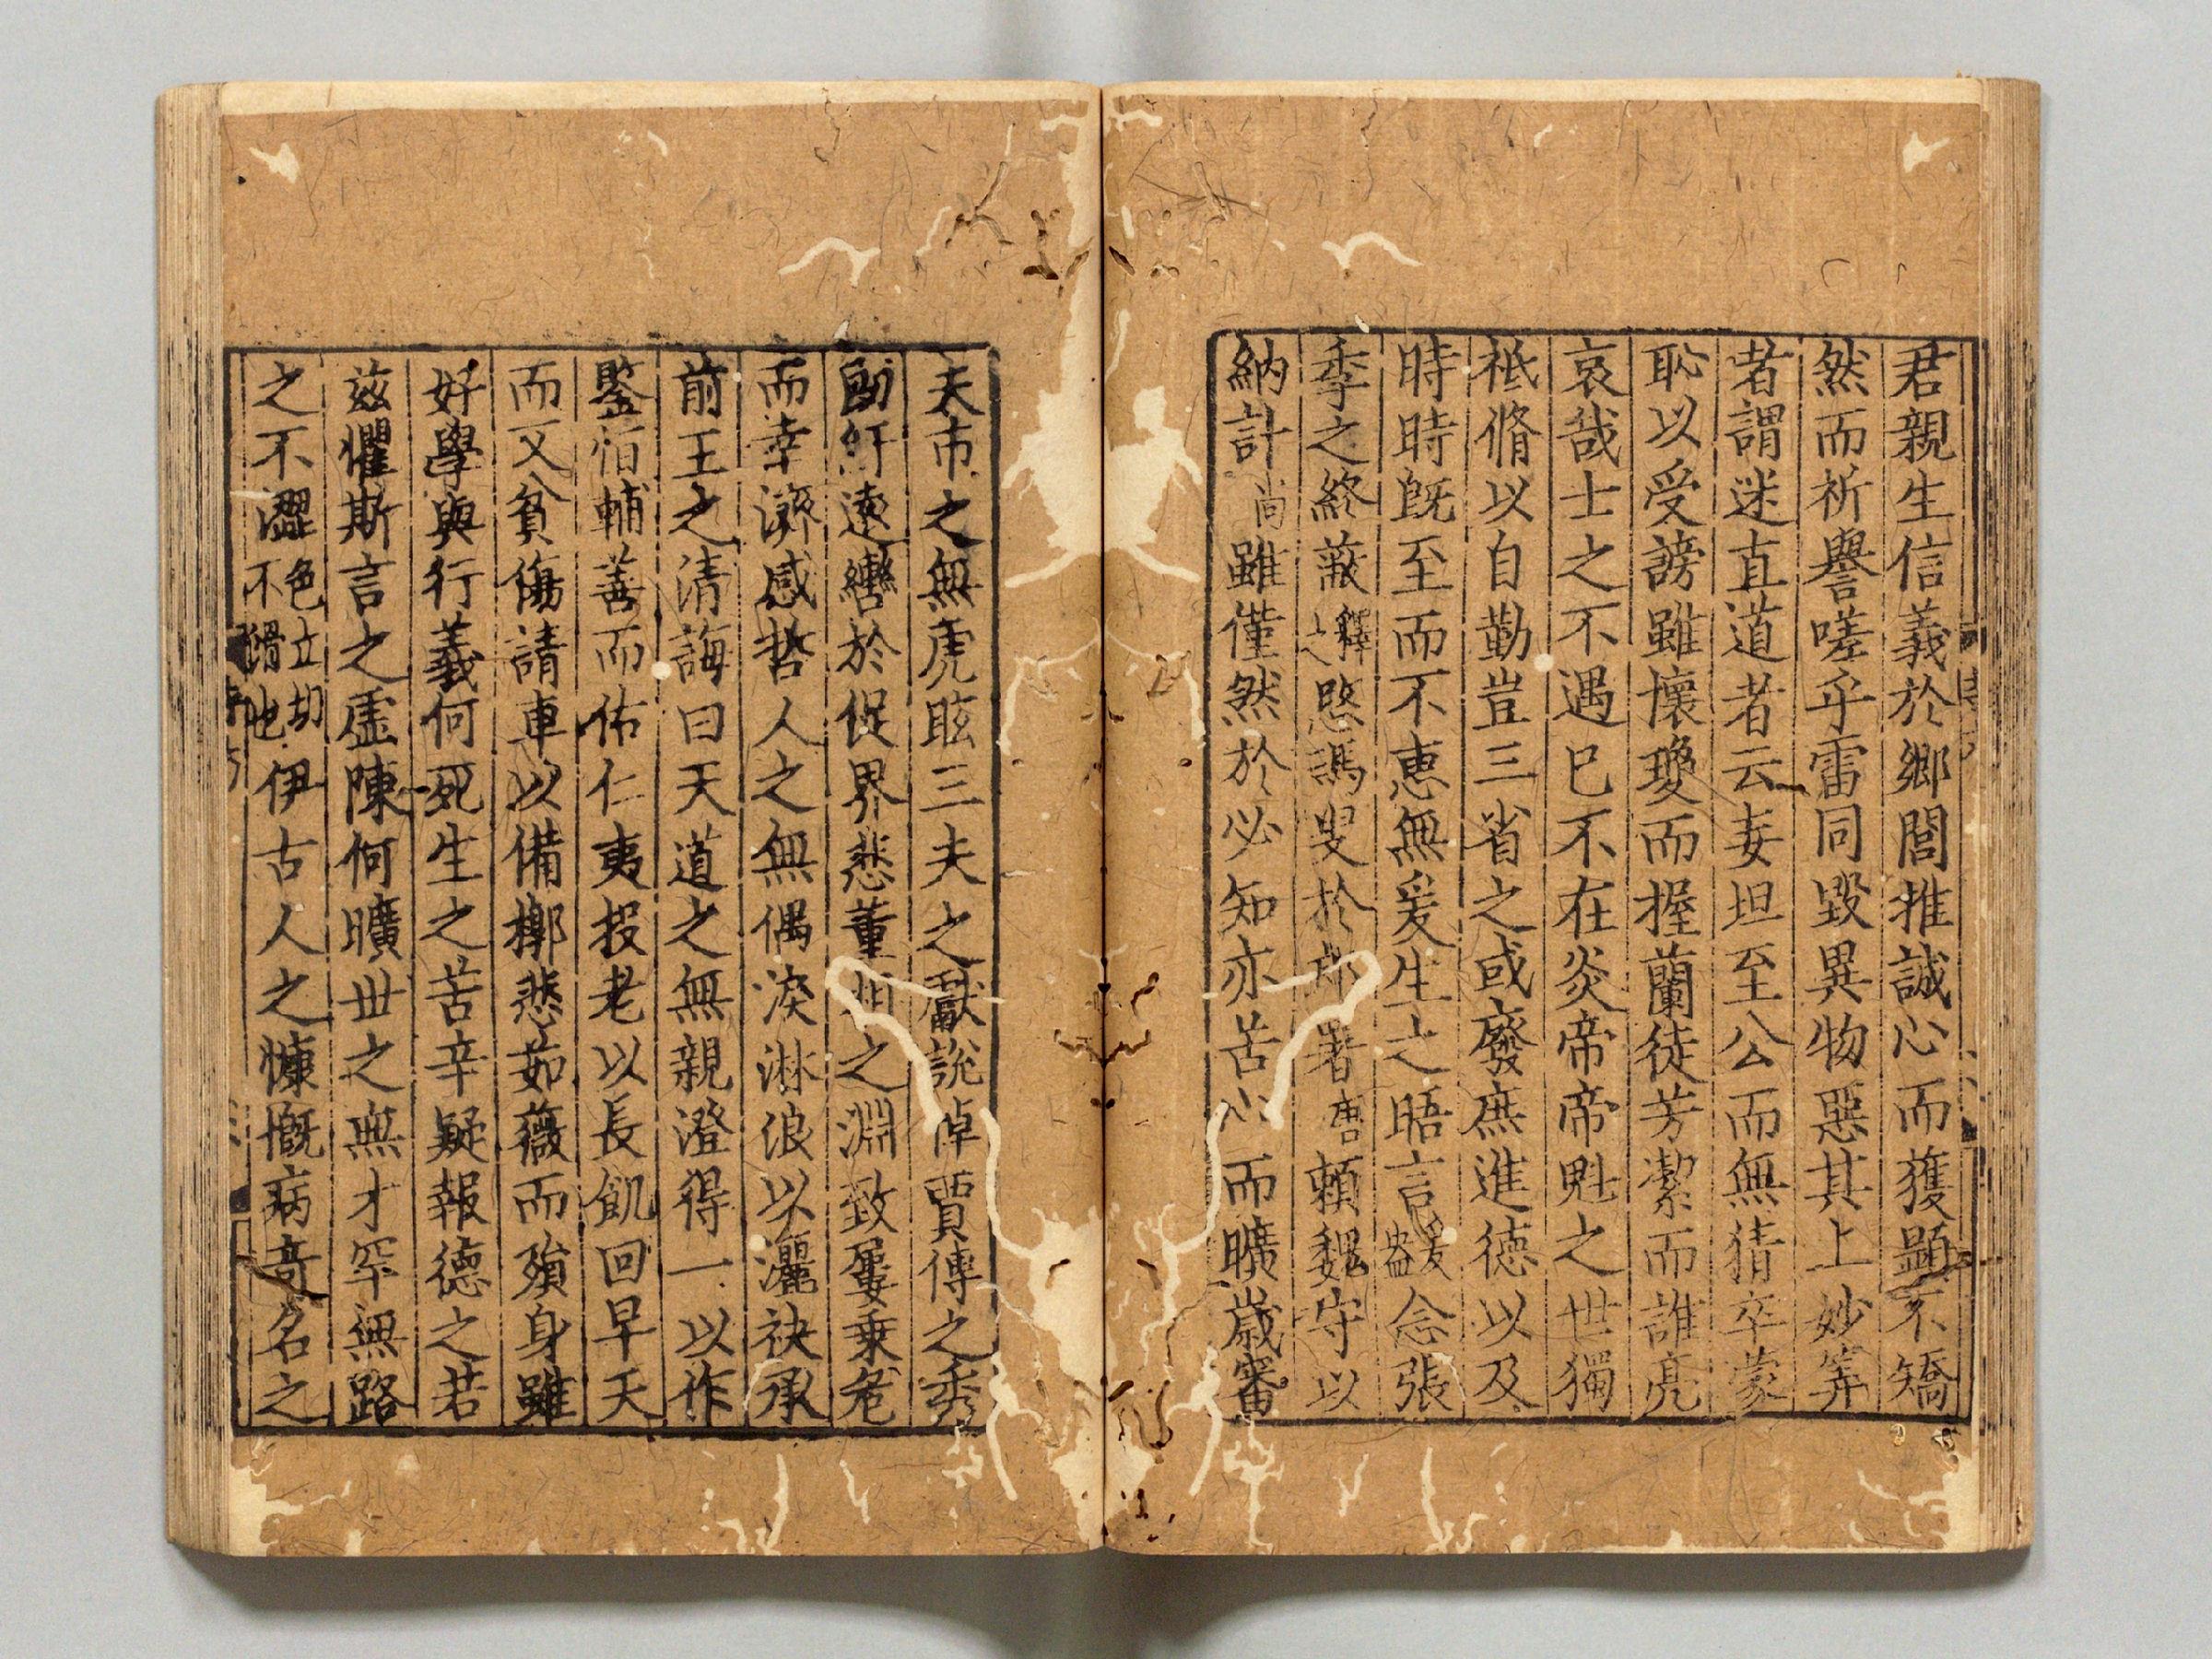 君親生信義於鄉閭推誠心而獲顯不矯
然而祈譽嗟乎雷同毀異物惡其上妙筭
者謂迷直道者云妄坦至公而無猜卒蒙
恥以受謗雖懷瓊而握蘭徒芳潔而誰亮
哀哉士之不遇巳不在炎帝帝魁之世獨
祗脩以自勤豈三省之或廢庶進德以及
時時旣至而不惠無爰生之晤言念張
季之終蔽愍馮叟於郎署賴魏守以
納計尚雖僅然於必知亦苦心而曠歲審
夫市之無虎眩三夫之獻說悼賈傅之秀
朗紆遠轡於促界悲董相之淵致屢乗危
而幸濟感哲人之無偶淚淋浪以灑袂承
前王之清誨曰天道之無親澄得一以作
鑒恒輔善而佑仁夷投老以長飢回早夭
而又貧傷請車以備槨悲茹薇而殞身雖
好學與行義何死生之苦辛疑報德之若
茲懼斯言之虛陳何曠世之無才罕無路
之不澀色立切不滑也伊古人之慷慨病奇名之